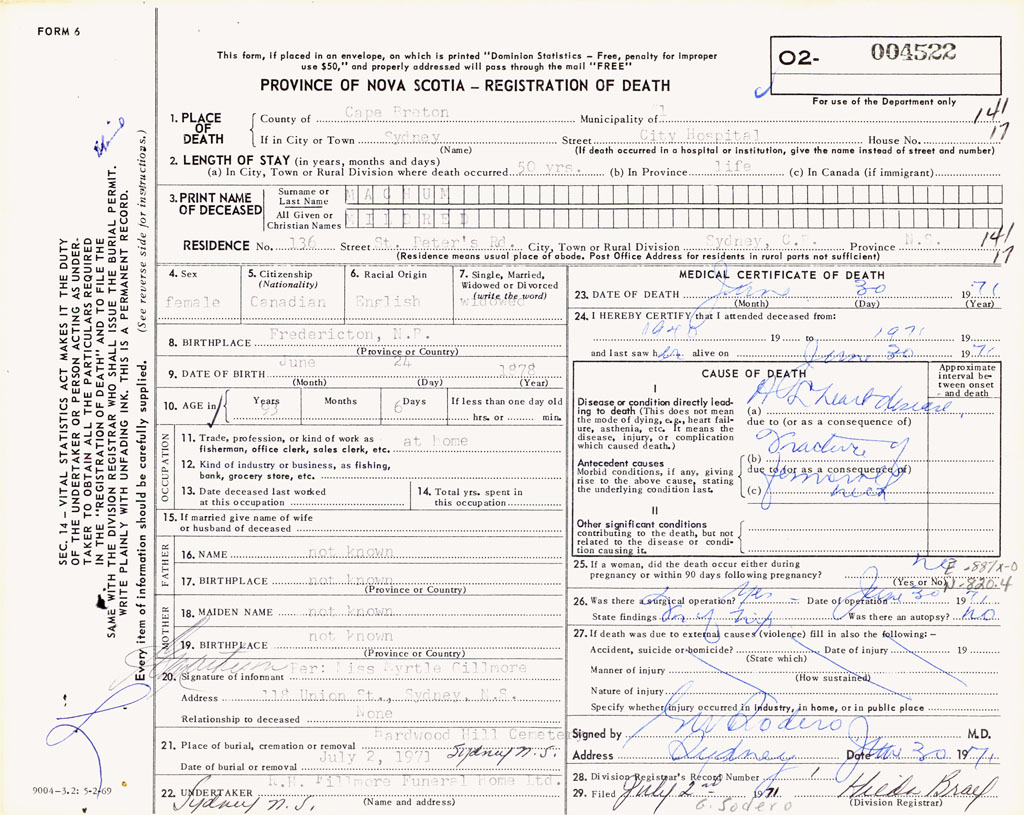 FORM 6
This form, if placed in an envelope, on which is printed "Dominion Statistics – Free, penalty for improper
use $50," and properly addressed will pass through the mail "FREE"
PROVINCE OF NOVA SCOTIA – REGISTRATION OF DEATH
O2- 004522
For use of the Department only
141
17
1. PLACE OF DEATH
County of Cape Breton Municipality of
If in City or Town Sydney Street City Hospital House No.
(Name) (If death occurred in a hospital or institution, give the name instead of street and number)
2. LENGTH OF STAY (in years, months and days)
(a) In City, Town or Rural Division where death occurred 50 yrs. (b) In Province life (c) In Canada (if immigrant)
3. PRINT NAME OF DECEASED
Surname or Last Name MACHUM
All Given or Christian Names MILDRED
RESIDENCE No. 136 Street St. Peter's Rd. City, Town or Rural Division Sydney, C.B. Province N.S.
(Residence means usual place of abode. Post Office Address for residents in rural parts not sufficient)
141
17
4. Sex
female
5. Citizenship
(Nationality)
Canadian
6. Racial Origin
English
7. Single, Married,
Widowed or Divorced
(write the word)
widowed
8. BIRTHPLACE Fredericton, N.B.
(Province or Country)
9. DATE OF BIRTH June 24 1878
(Month) (Day) (Year)
10. AGE in Years Months Days If less than one day old
93 6 hrs. or min.
OCCUPATION
11. Trade, profession, or kind of work as
fisherman, office clerk, sales clerk, etc. at home
12. Kind of industry or business, as fishing,
bank, grocery store, etc.
13. Date deceased last worked
at this occupation
14. Total yrs. spent in
this occupation
15. If married give name of wife
or husband of deceased
FATHER
16. NAME not known
17. BIRTHPLACE not known
(Province or Country)
MOTHER
18. MAIDEN NAME not known
19. BIRTHPLACE not known
(Province or Country)
20. Signature of informant Per: Miss Myrtle Gillmore
Address 118 Union St., Sydney, N.S.
Relationship to deceased None
21. Place of burial, cremation or removal Hardwood Hill Cemetery
Sydney N.S.
Date of burial or removal July 2, 1971
22. UNDERTAKER Fillmore Funeral Home Ltd.
Sydney N.S. (Name and address)
MEDICAL CERTIFICATE OF DEATH
23. DATE OF DEATH June 30 1971
(Month) (Day) (Year)
24. I HEREBY CERTIFY that I attended deceased from:
1948 19 to 1971
and last saw her alive on June 30 1971
CAUSE OF DEATH
Approximate
interval be-
tween onset
and death
I
Disease or condition directly lead-
ing to death (This does not mean
the mode of dying, e.g., heart fail-
ure, asthenia, etc. It means the
disease, injury, or complication
which caused death.)
(a) heart disease
due to (or as a consequence of)
Antecedent causes
Morbid conditions, if any, giving
rise to the above cause, stating
the underlying condition last.
Fracture of
(b)
due to (or as a consequence of)
(c) neck
II
Other significant conditions
contributing to the death, but not
related to the disease or condi-
tion causing it.
25. If a woman, did the death occur either during
pregnancy or within 90 days following pregnancy? no
(Yes or No)
E-887X-0
N-820.4
26. Was there a surgical operation? yes – Date of operation June 30 1971
State findings of hip Was there an autopsy? no
27. If death was due to external causes (violence) fill in also the following: –
Accident, suicide or homicide? Date of injury 19
(State which)
Manner of injury
(How sustained)
Nature of injury
Specify whether injury occurred in Industry, in home, or in public place
Signed by Sodero M.D.
Address Sydney Date June 30 1971
28. Division Registrar's Record Number
29. Filed July 2nd 1971
G. Sodero
(Division Registrar)
SEC. 14 – VITAL STATISTICS ACT MAKES IT THE DUTY
OF THE UNDERTAKER OR PERSON ACTING AS UNDER-
TAKER TO OBTAIN ALL THE PARTICULARS REQUIRED
IN THE "REGISTRATION OF DEATH" AND TO FILE THE
SAME WITH THE DIVISION REGISTRAR WHO SHALL ISSUE THE BURIAL PERMIT.
WRITE PLAINLY WITH UNFADING INK. THIS IS A PERMANENT RECORD.
Every item of information should be carefully supplied. (See reverse side for instructions.)
9004–3.2: 5-2-69